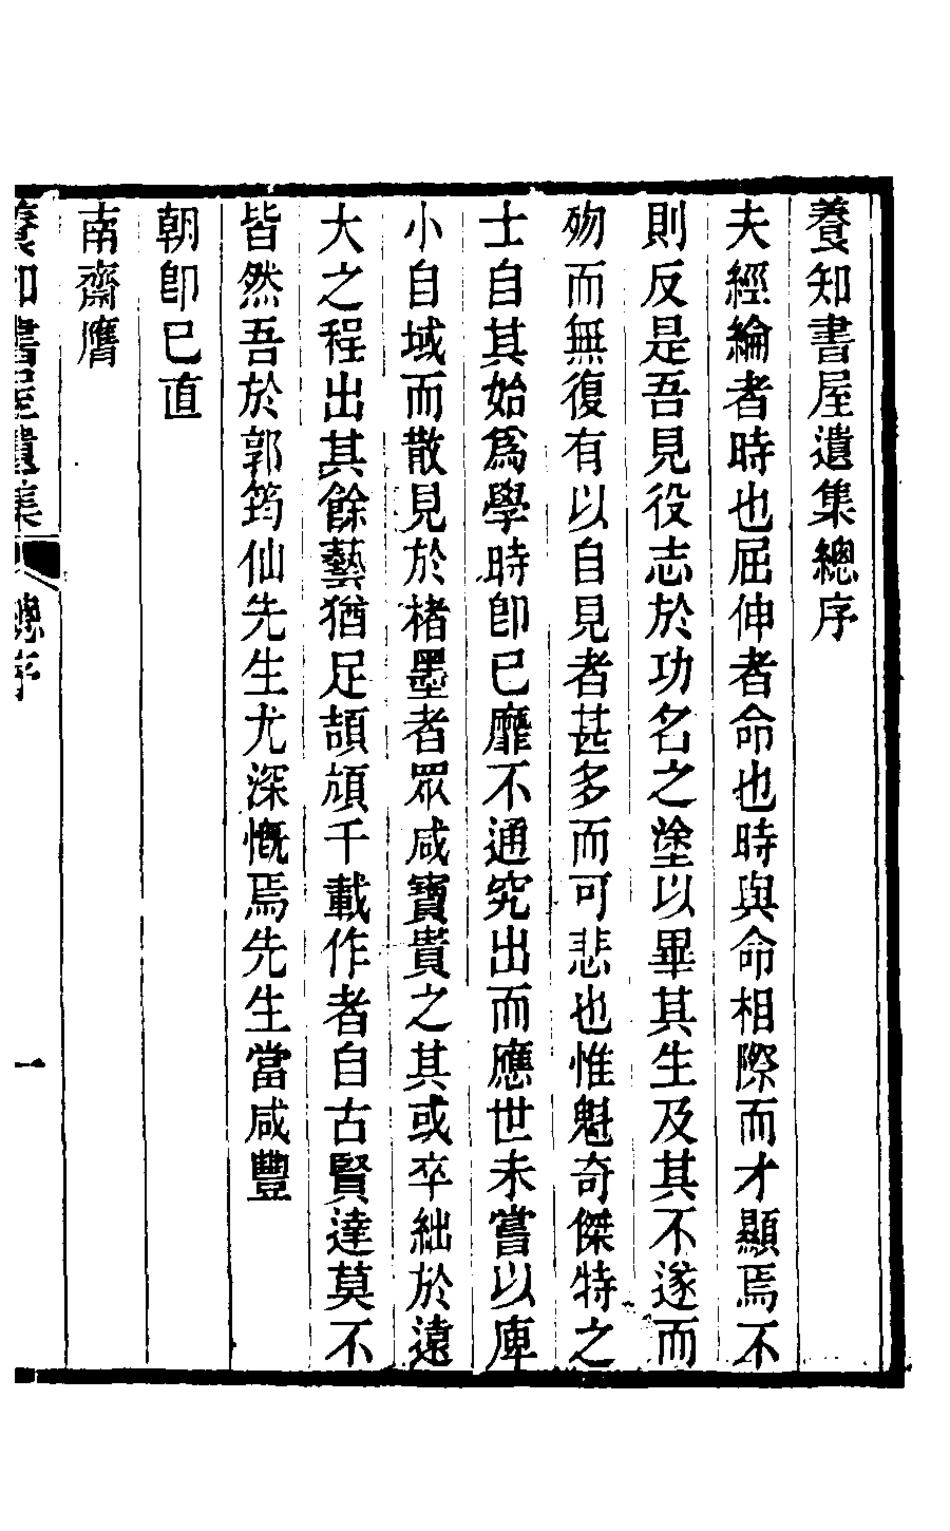 養知書屋遺集總序
夫經綸者時也屈伸者命也時與命相際而才顯焉不
則反是吾見役志於功名之塗以畢其生及其不遂而
歾而無復有以自見者甚多而可悲也惟魁奇傑特之
士自其始爲學時卽已靡不通究出而應世未嘗以庳
小自域而散見於楮墨者眾咸寶貴之其或卒絀於遠
大之程出其餘藝猶足頡頏千載作者自古賢達莫不
皆然吾於郭筠仙先生尤深慨焉先生當咸豐
朝卽已直
南齋膺
養知書屋遺集 總序 一